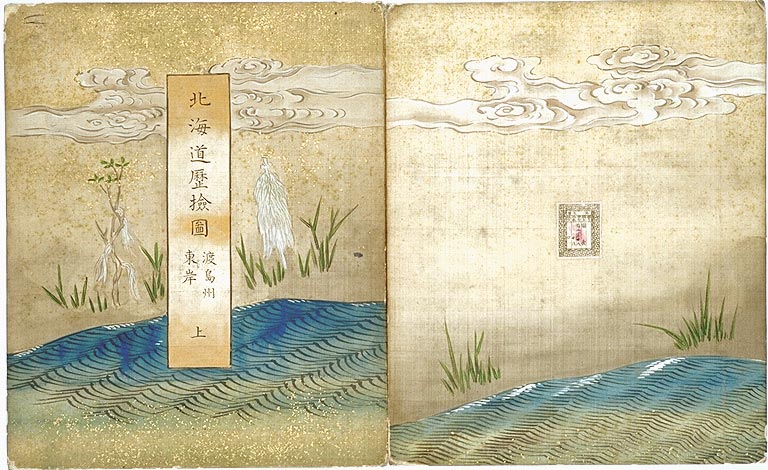 北海道歷撿圖
渡島州
東岸
上